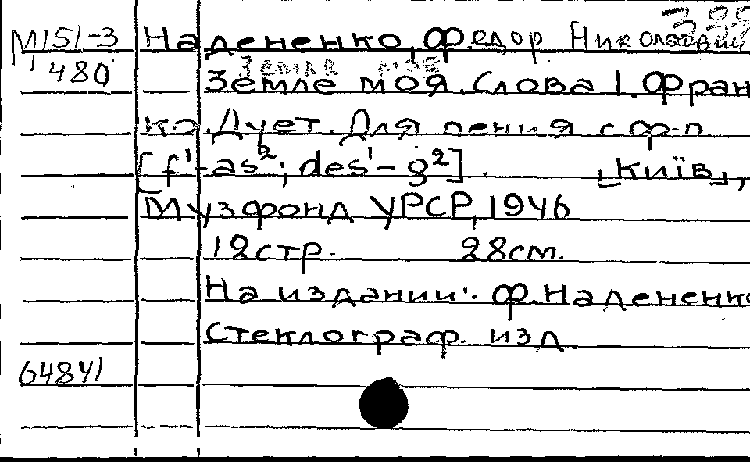 399
М151-3 Надененко, Федор Николаевич
480 Земля моя
Земле моя. Слова І. Фран
ко. Дует. Для пения с ф-п.
[f¹-as²; des¹-g²]. [Київ],
Музфонд УРСР, 1946
12стр. 28см.
На издании: Ф. Надененко
Стеклограф. изд.
64841